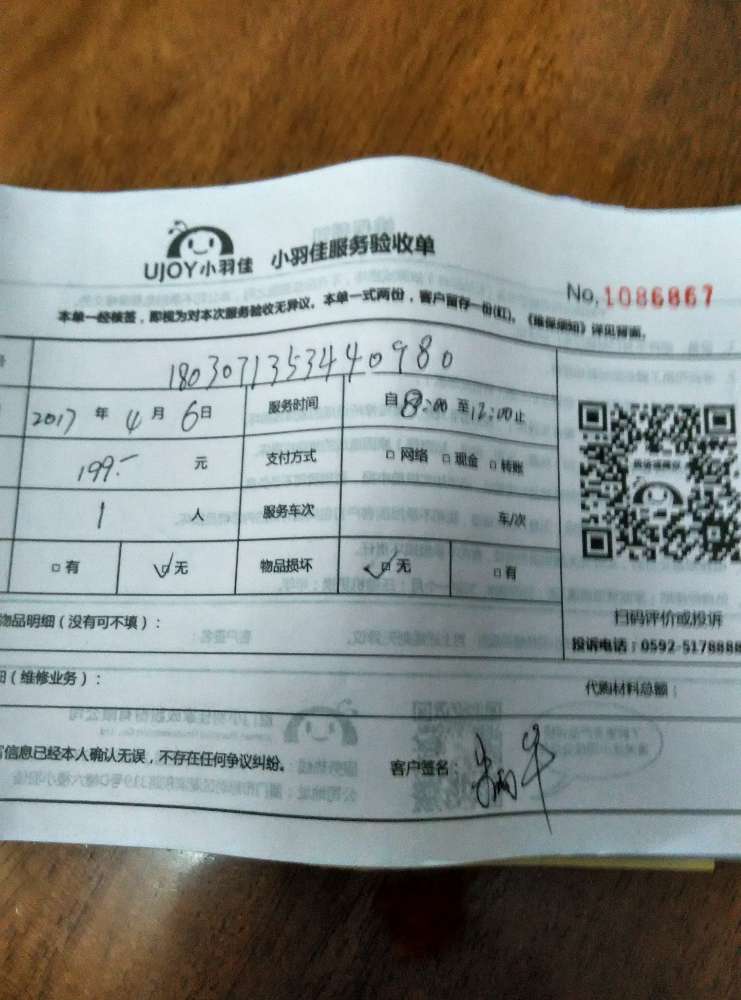 UJOY小羽佳 小羽佳服务验收单
No. 1086867
本单一经核签，即视为对本次服务验收无异议。本单一式两份，客户留存一份(红)。《维保须知》详见背面。
1803071353440980
2017 年 4 月 6 日 服务时间 自 8:00 至 12:00 止
199.- 元 支付方式 □ 网络 □ 现金 □ 转账
1 人 服务车次 车/次
□ 有 □ 无 物品损坏 □ 无 □ 有
扫码评价或投诉
物品明细（没有可不填）：
投诉电话：0592-5178888
（维修业务）：
代购材料总额：
信息已经本人确认无误，不存在任何争议纠纷。 客户签名：